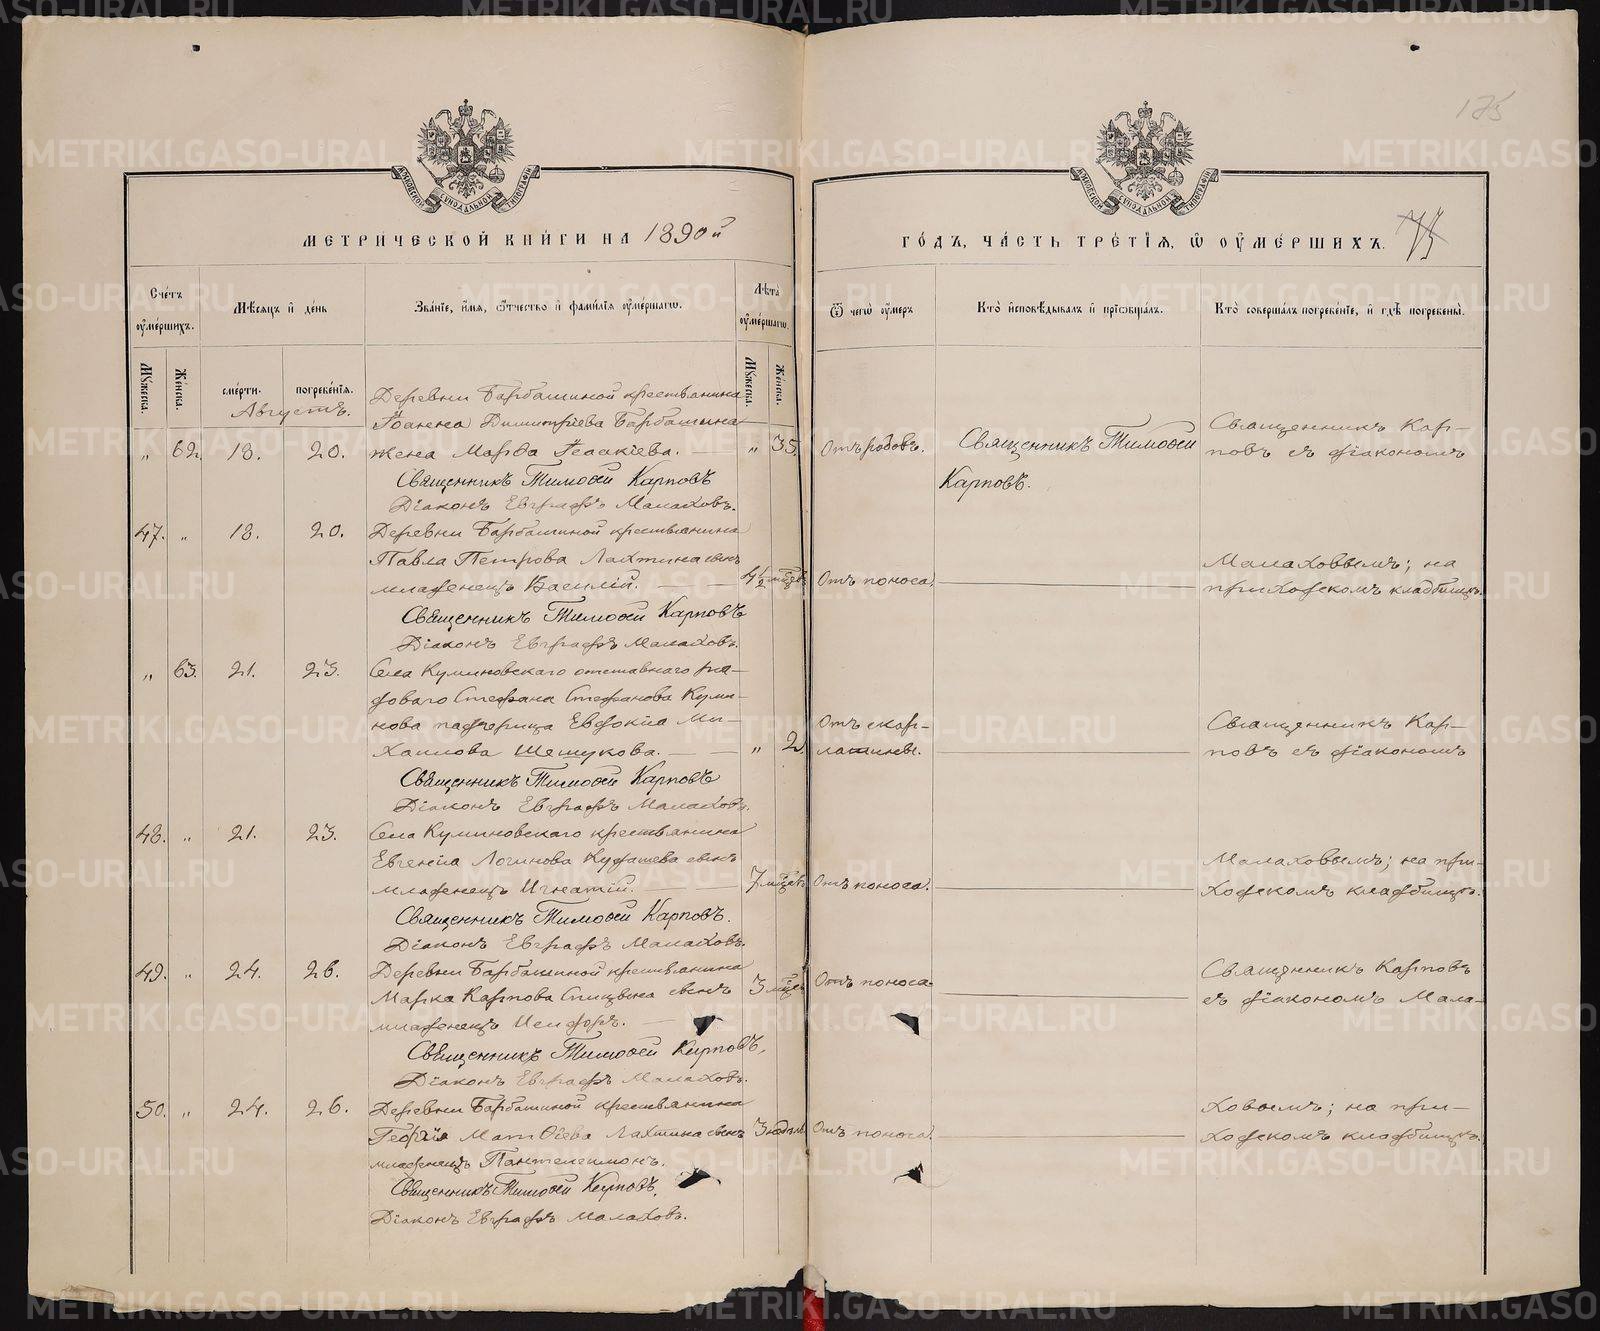 175
МЕТРИЧЕСКОЙ КНИГИ НА 1890й
ГОДЪ, ЧАСТЬ ТРЕТІЯ, Ѿ ОУМЕРШИХЪ. 75
Счетъ оумершихъ.
Мѣсяцъ и день
Званіе, имя, ѿтчество и фамилія оумершагѡ.
Лѣта оумершагѡ.
Ѿ чегѡ оумеръ
Кто исповѣдывалъ и пріѡбщалъ.
Кто совершалъ погребеніе, и гдѣ погребены.
Мужеска.
Женска.
смерти.
погребенія.
Мужеска.
Женска.
Августъ.
Деревни Барбашиной крестьянина
Іоанна Димитріева Барбашина
„ 62. 18. 20. жена Марѳа Исакіева. „ 35. Отъ родовъ. Священникъ Тимоѳей
Карповъ.
Священникъ Кар-
повъ съ діакономъ
Священникъ Тимоѳей Карповъ
Діаконъ Евграфъ Малаховъ.
47. „ 18. 20. Деревни Барбашиной крестьянина
Павла Петрова Лахтина сынъ
младенецъ Василій. 4½ мѣсяц. Отъ поноса.
Малаховымъ; на
приходскомъ кладбищѣ.
Священникъ Тимоѳей Карповъ
Діаконъ Евграфъ Малаховъ.
„ 63. 21. 23. Села Куминовскаго отставнаго ря-
доваго Стефана Стефанова Куми-
нова падчерица Евдокіа Ми-
хаилова Шешукова. „ 2. Отъ скар-
латины.
Священникъ Кар-
повъ съ діакономъ
Священникъ Тимоѳей Карповъ
Діаконъ Евграфъ Малаховъ.
48. „ 21. 23. Села Куминовскаго крестьянина
Евгеніа Логинова сынъ
младенецъ Игнатій. 7 мѣсяц. Отъ поноса.
Малаховымъ; на при-
ходскомъ кладбищѣ.
Священникъ Тимоѳей Карповъ.
Діаконъ Евграфъ Малаховъ.
49. „ 24. 26. Деревни Барбашиной крестьянина
Марка Карпова сынъ 3 мѣсяц. Отъ поноса.
младенецъ
Священникъ Карповъ
съ діакономъ Мала-
Священникъ Тимоѳей Карповъ,
Діаконъ Евграфъ Малаховъ.
50. „ 24. 26. Деревни Барбашиной крестьянина
Георгія Матѳіева Лахтина сынъ 3 недѣль. Отъ поноса.
младенецъ Пантелеимонъ.
ховымъ; на при-
ходскомъ кладбищѣ.
Священникъ Тимоѳей Карповъ,
Діаконъ Евграфъ Малаховъ.
METRIKI.GASO-URAL.RU